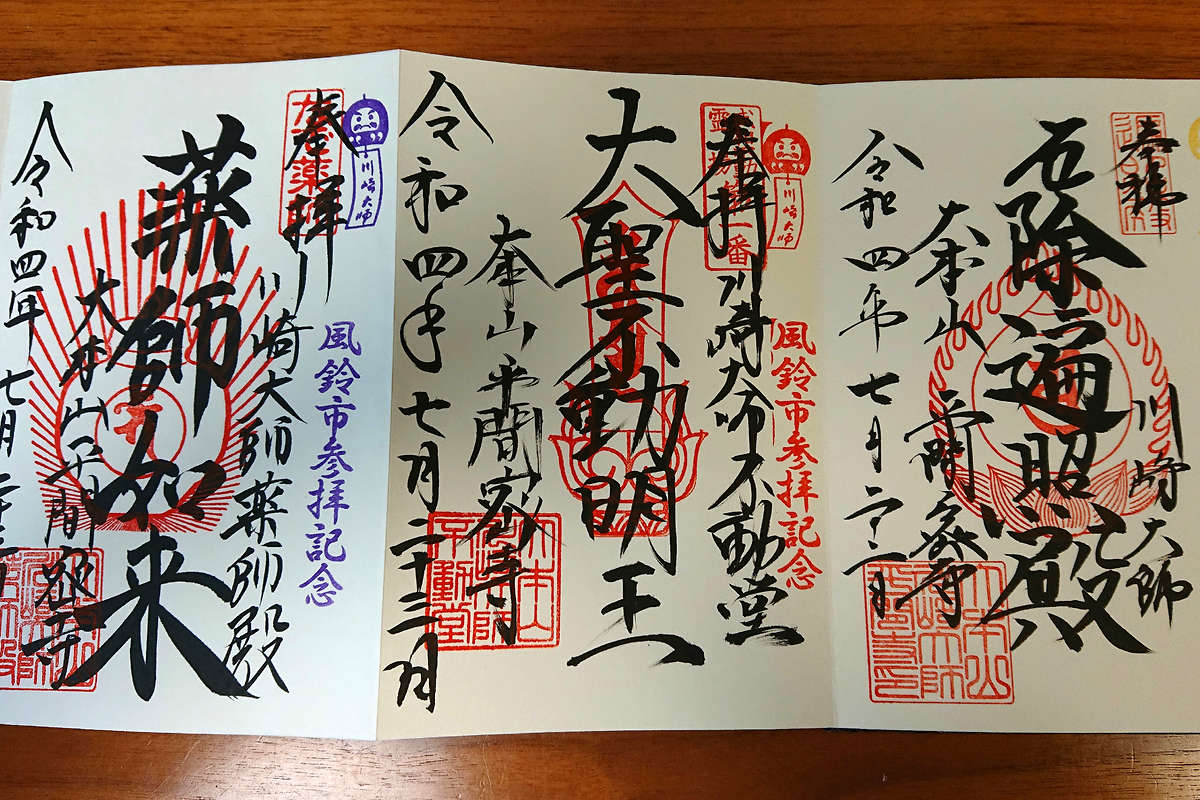 奉拝
川崎大師
厄除遍照殿
大本山 平間寺
令和四年 七月二十三日
奉拝
川崎大師
風鈴市参拝記念
川崎大師不動堂
大聖不動明王
大本山平間寺
令和四年七月二十三日
奉拝
川崎大師
風鈴市参拝記念
川崎大師薬師殿
薬師如来
大本山平間寺
令和四年七月二十三